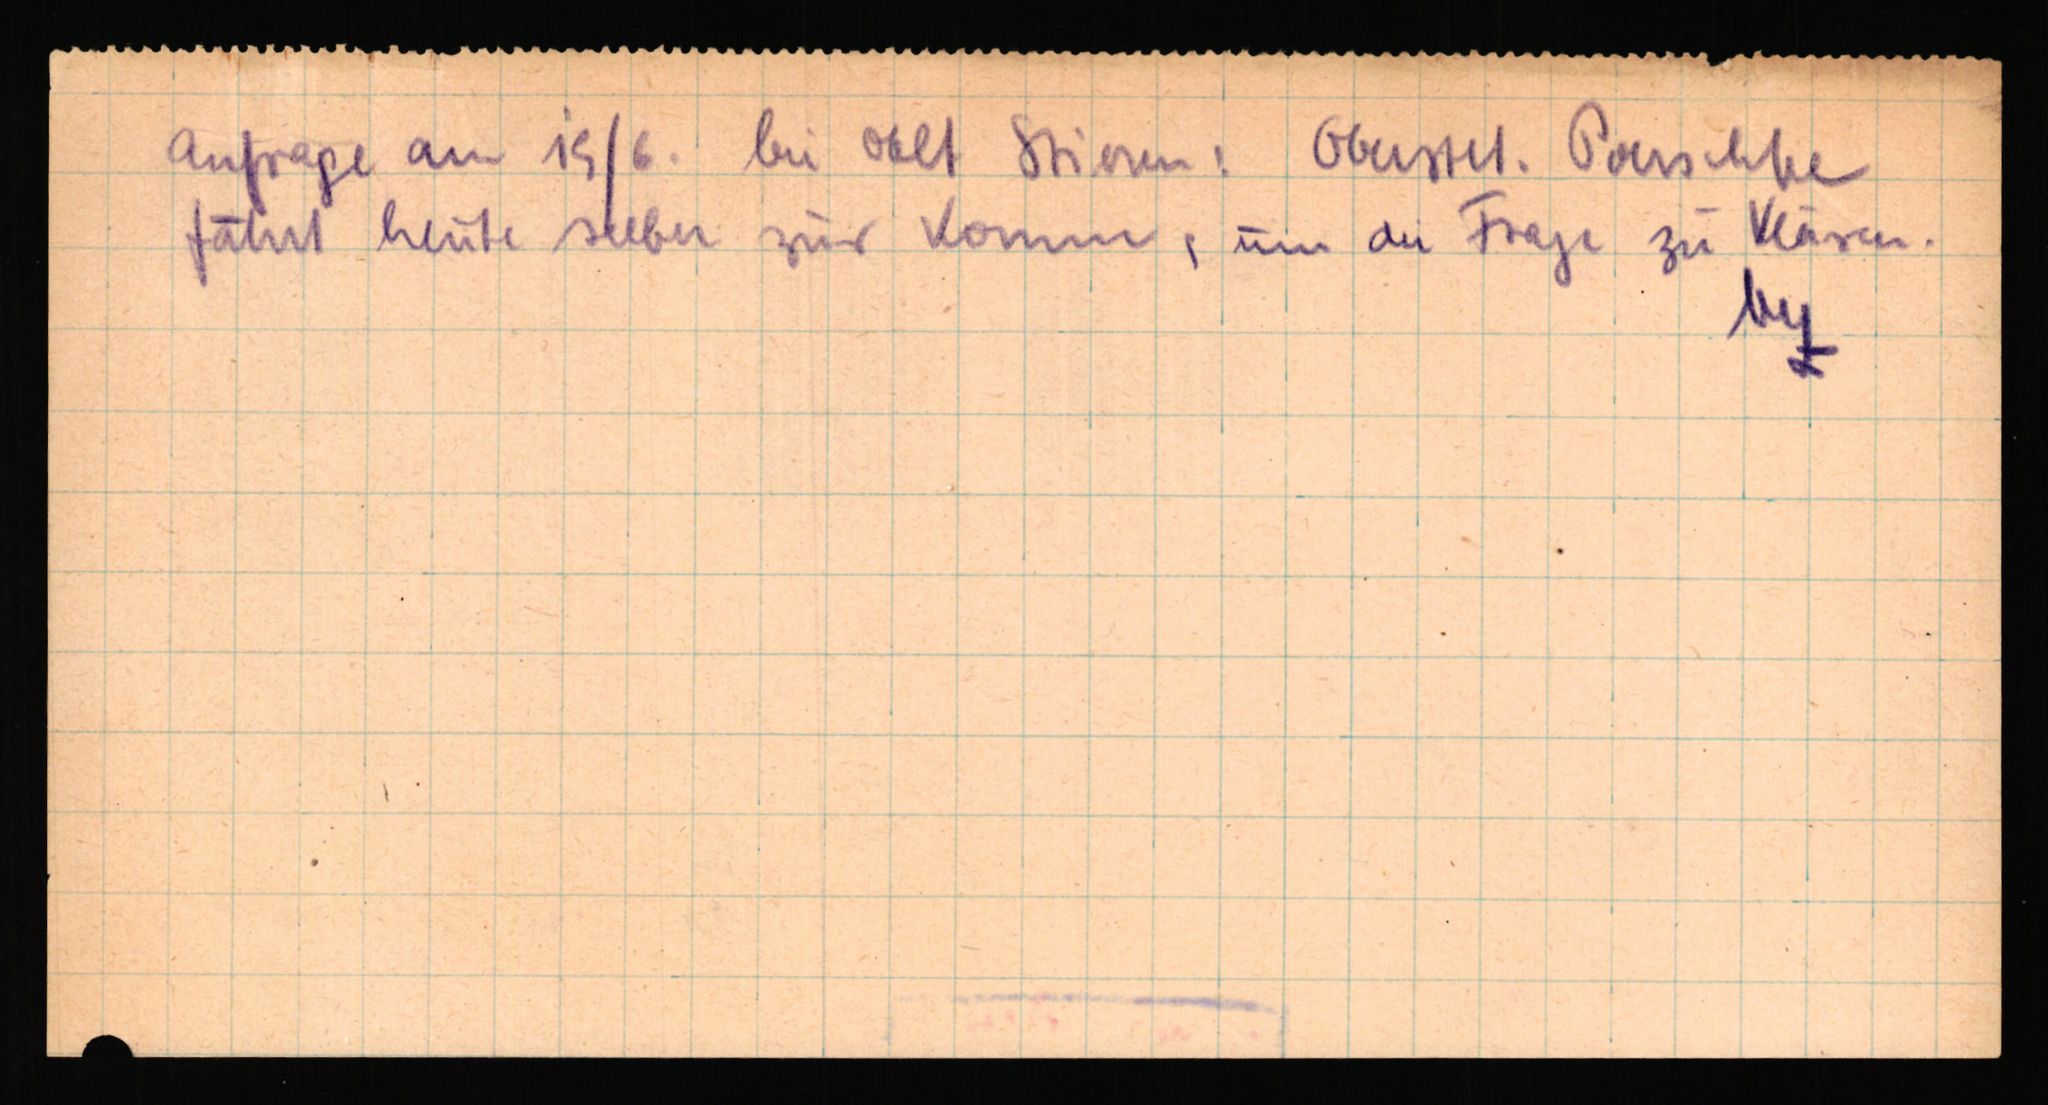 Anfrage am 19/6. bei Oblt Stieren: Oberstlt. Poerschke
fährt heute selber zur Komm, um die Frage zu klären.